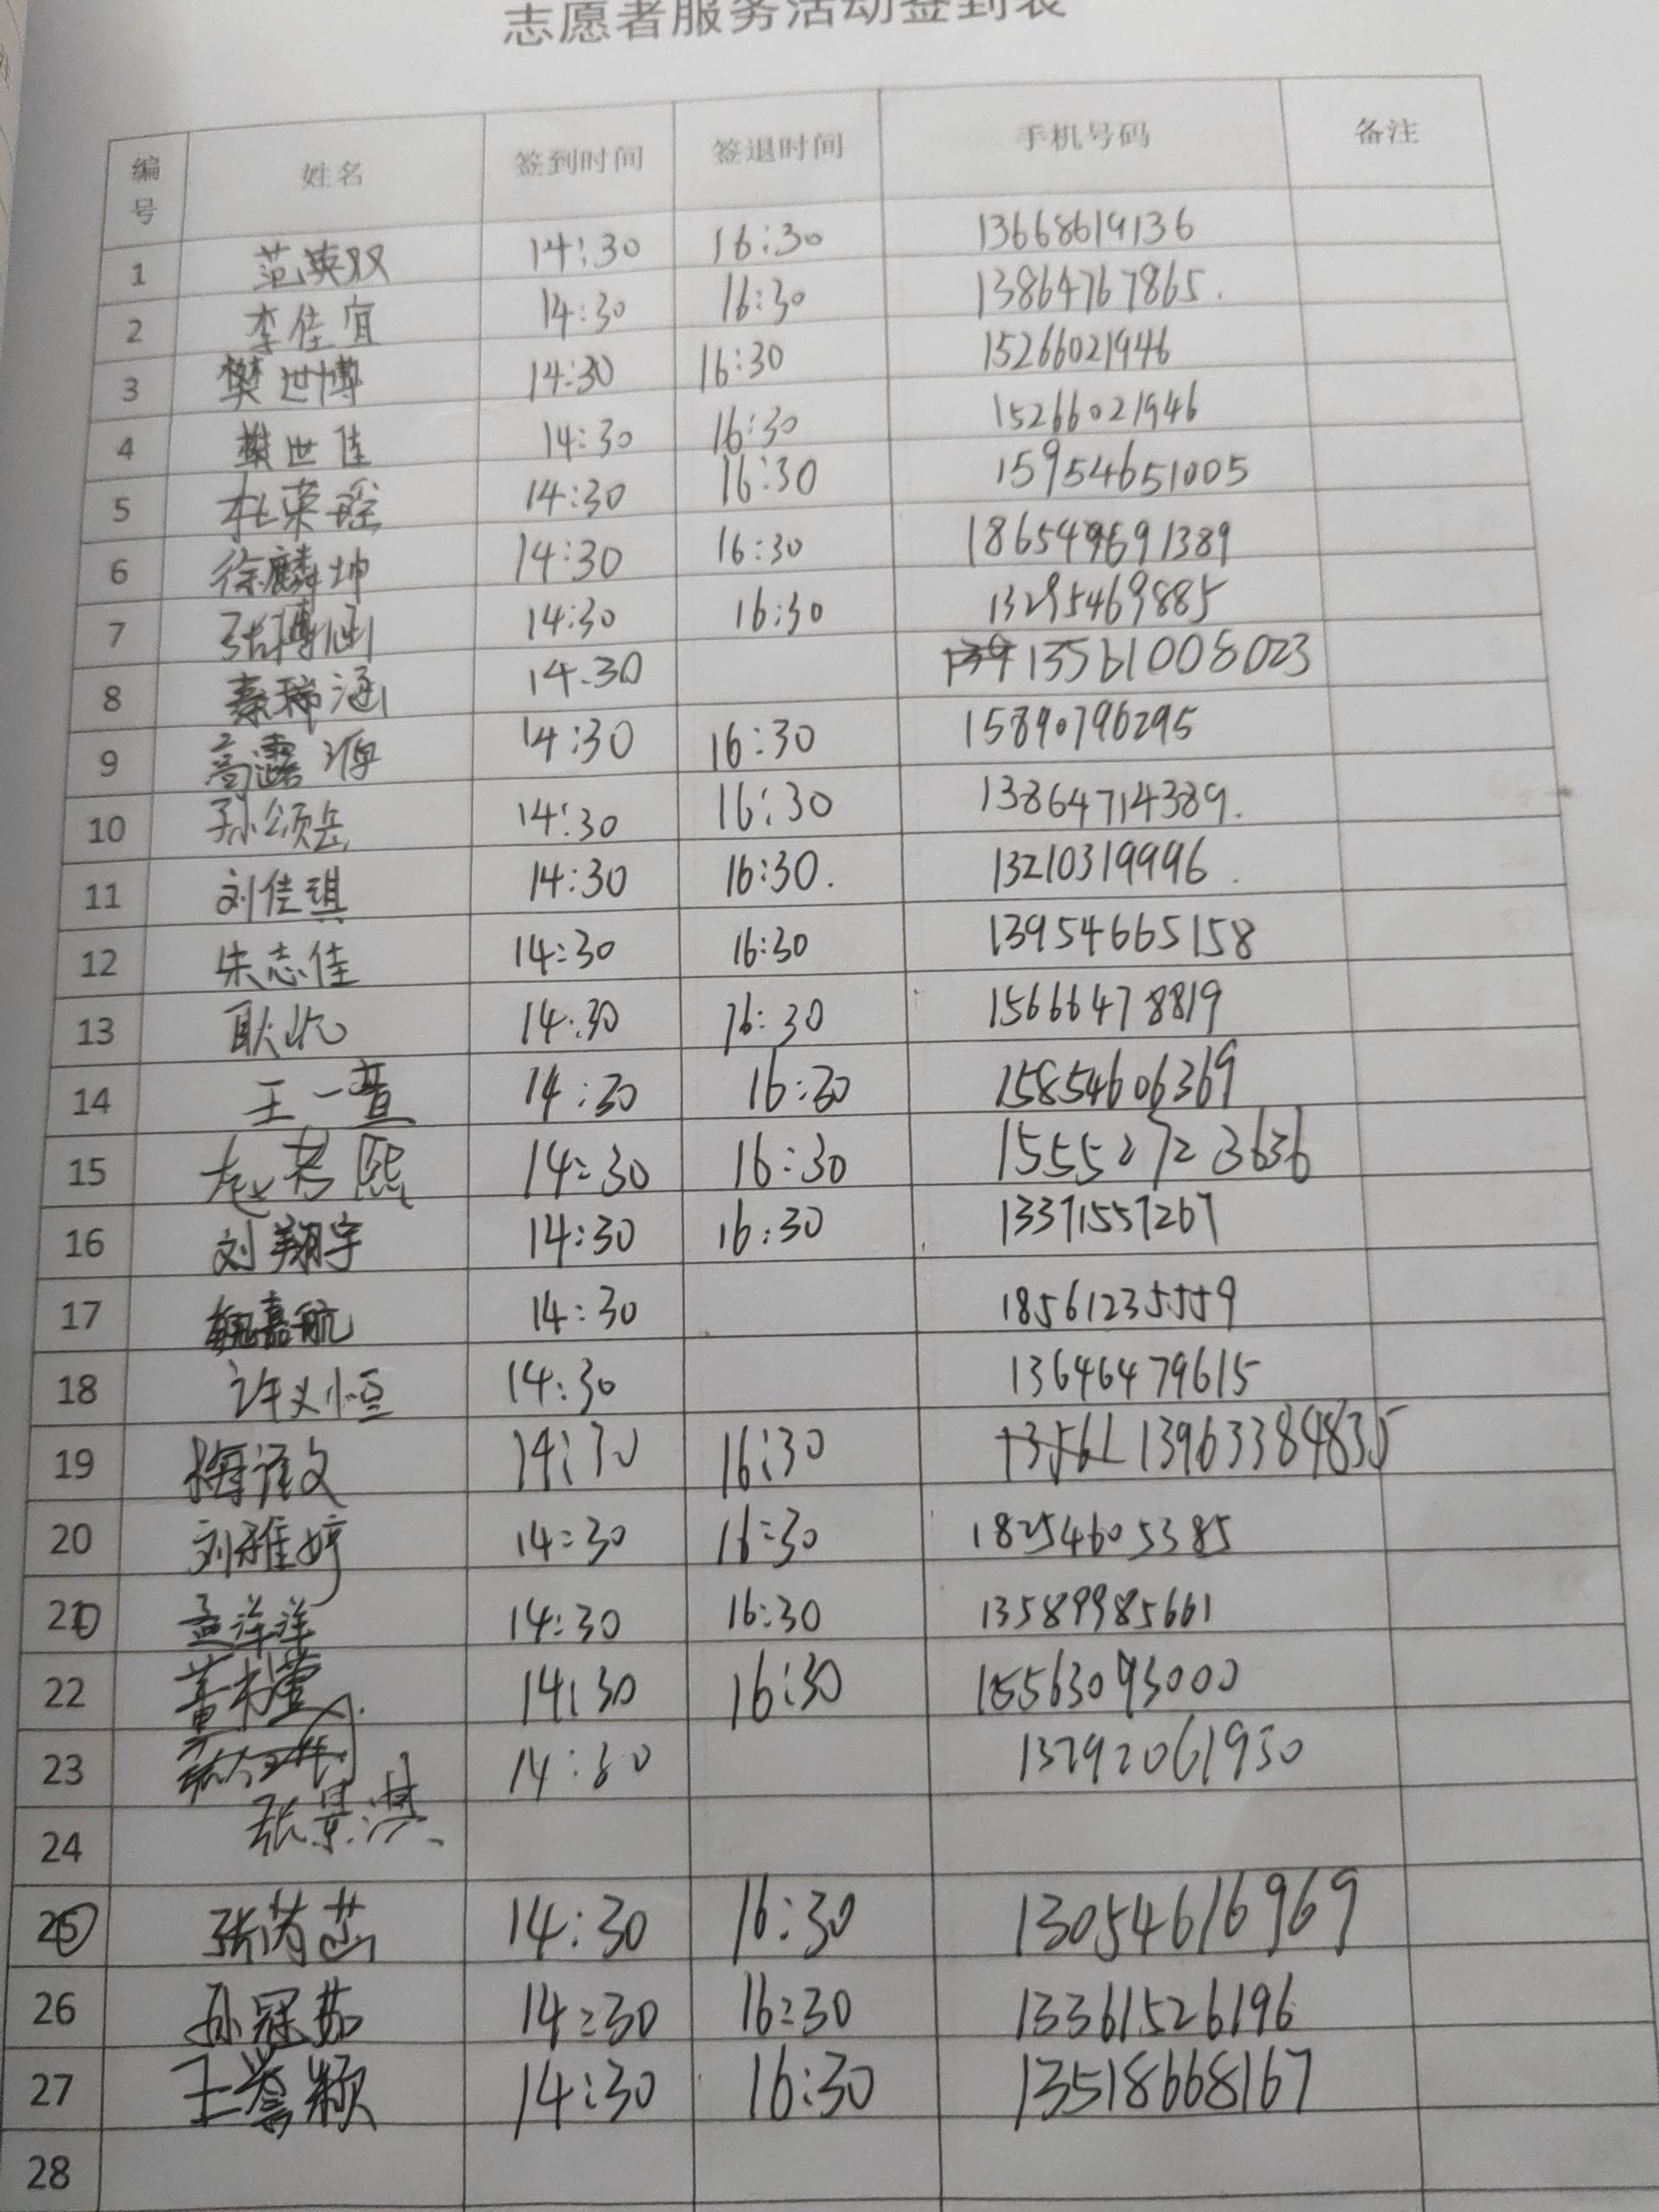 志愿者服务活动签到表
编号 姓名 签到时间 签退时间 手机号码 备注
1 范英双 14:30 16:30 13668619136
2 李佳宜 14:30 16:30 13864767865.
3 樊世博 14:30 16:30 15266021946
4 樊世佳 14:30 16:30 15266021946
5 杜荣瑶 14:30 16:30 15954651005
6 徐麟坤 14:30 16:30
7 张博涵 14:30 16:30 13295469885
8 秦瑞涵 14:30 13561008023
9 高露源 14:30 16:30 15890796295
10 孙颂岳 14:30 16:30 13864714389.
11 刘佳琪 14:30 16:30. 13210319996.
12 朱志佳 14:30 16:30 13954665158
13 耿 14:30 16:30 15666478819
14 王一萱 14:30 16:30 15854606369
15 赵若熙 14:30 16:30 15552723636
16 刘翔宇 14:30 16:30 13371557267
17 魏嘉航 14:30 18561235559
18 许义恒 14:30 13646479615
19 梅译文 14:30 16:30 13963384835
20 刘雅婷 14:30 16:30 18254605385
21 孟洋洋 14:30 16:30 13589985661
22 董 14:30 16:30 15563093000
23 14:30 13792061930
24 张景淇
25 张芮菡 14:30 16:30 13054616969
26 孙冠茹 14:30 16:30 13361526196
27 王誉颖 14:30 16:30 13518668167
28